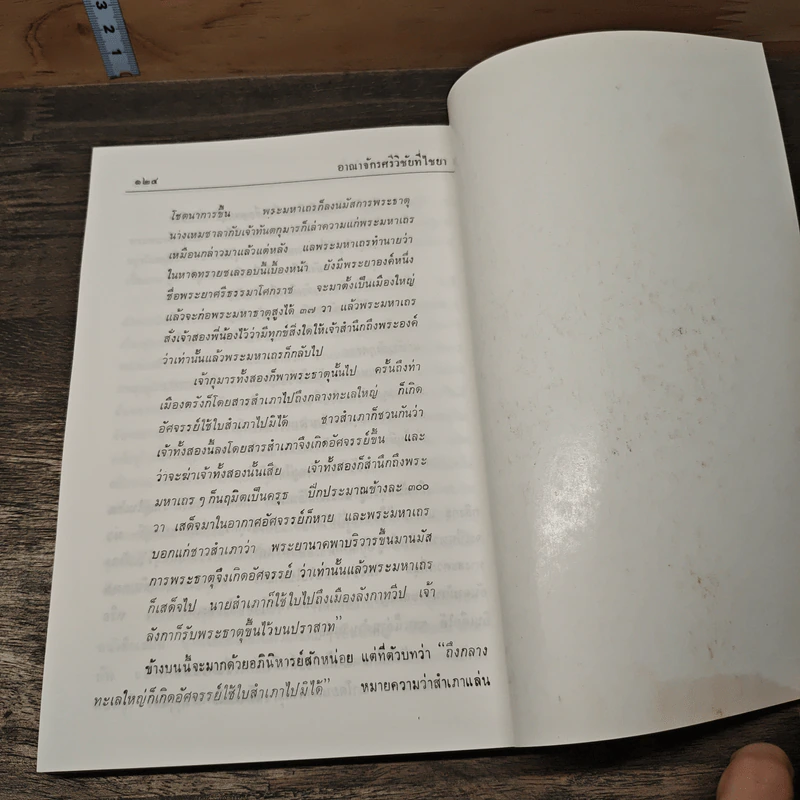 3 2 1
๑๒๔ อาณาจักรศรีวิชัยที่ไชยา
โชตนาการขึ้น พระมหาเถรก็ลงนมัสการพระธาตุ
นางเหมชาลากับเจ้าทันตกุมารก็เล่าความแก่พระมหาเถร
เหมือนกล่าวมาแล้วแต่หลัง แลพระมหาเถรทำนายว่า
ในหาดทรายชเลรอบนี้เบื้องหน้า ยังมีพระยาองค์หนึ่ง
ชื่อพระยาศรีธรรมาโศกราช จะมาตั้งเป็นเมืองใหญ่
แล้วจะก่อพระมหาธาตุสูงได้ ๓๗ วา แล้วพระมหาเถร
สั่งเจ้าสองพี่น้องไว้ว่ามีทุกข์สิ่งใดให้เจ้าสำนึกถึงพระองค์
ว่าเท่านั้นแล้วพระมหาเถรก็กลับไป
เจ้ากุมารทั้งสองก็พาพระธาตุนั้นไป ครั้นถึงท่า
เมืองตรังก็โดยสารสำเภาไปถึงกลางทะเลใหญ่ ก็เกิด
อัศจรรย์ใช้ใบสำเภาไปมิได้ ชาวสำเภาก็ชวนกันว่า
เจ้าทั้งสองนี้ลงโดยสารสำเภาจึงเกิดอัศจรรย์ขึ้น และ
ว่าจะฆ่าเจ้าทั้งสองนั้นเสีย เจ้าทั้งสองก็สำนึกถึงพระ
มหาเถร ๆ ก็นฤมิตเป็นครุธ ปีกประมาณข้างละ ๓๐๐
วา เสด็จมาในอากาศอัศจรรย์ก็หาย และพระมหาเถร
บอกแก่ชาวสำเภาว่า พระยานาคพาบริวารขึ้นมานมัส
การพระธาตุจึงเกิดอัศจรรย์ ว่าเท่านั้นแล้วพระมหาเถร
ก็เสด็จไป นายสำเภาก็ใช้ใบไปถึงเมืองลังกาทวีป เจ้า
ลังกาก็รับพระธาตุขึ้นไว้บนปราสาท”
ข้างบนนี้จะมากด้วยอภินิหารย์สักหน่อย แต่ที่ตัวบทว่า “ถึงกลาง
ทะเลใหญ่ก็เกิดอัศจรรย์ใช้ใบสำเภาไปมิได้” หมายความว่าสำเภาแล่น